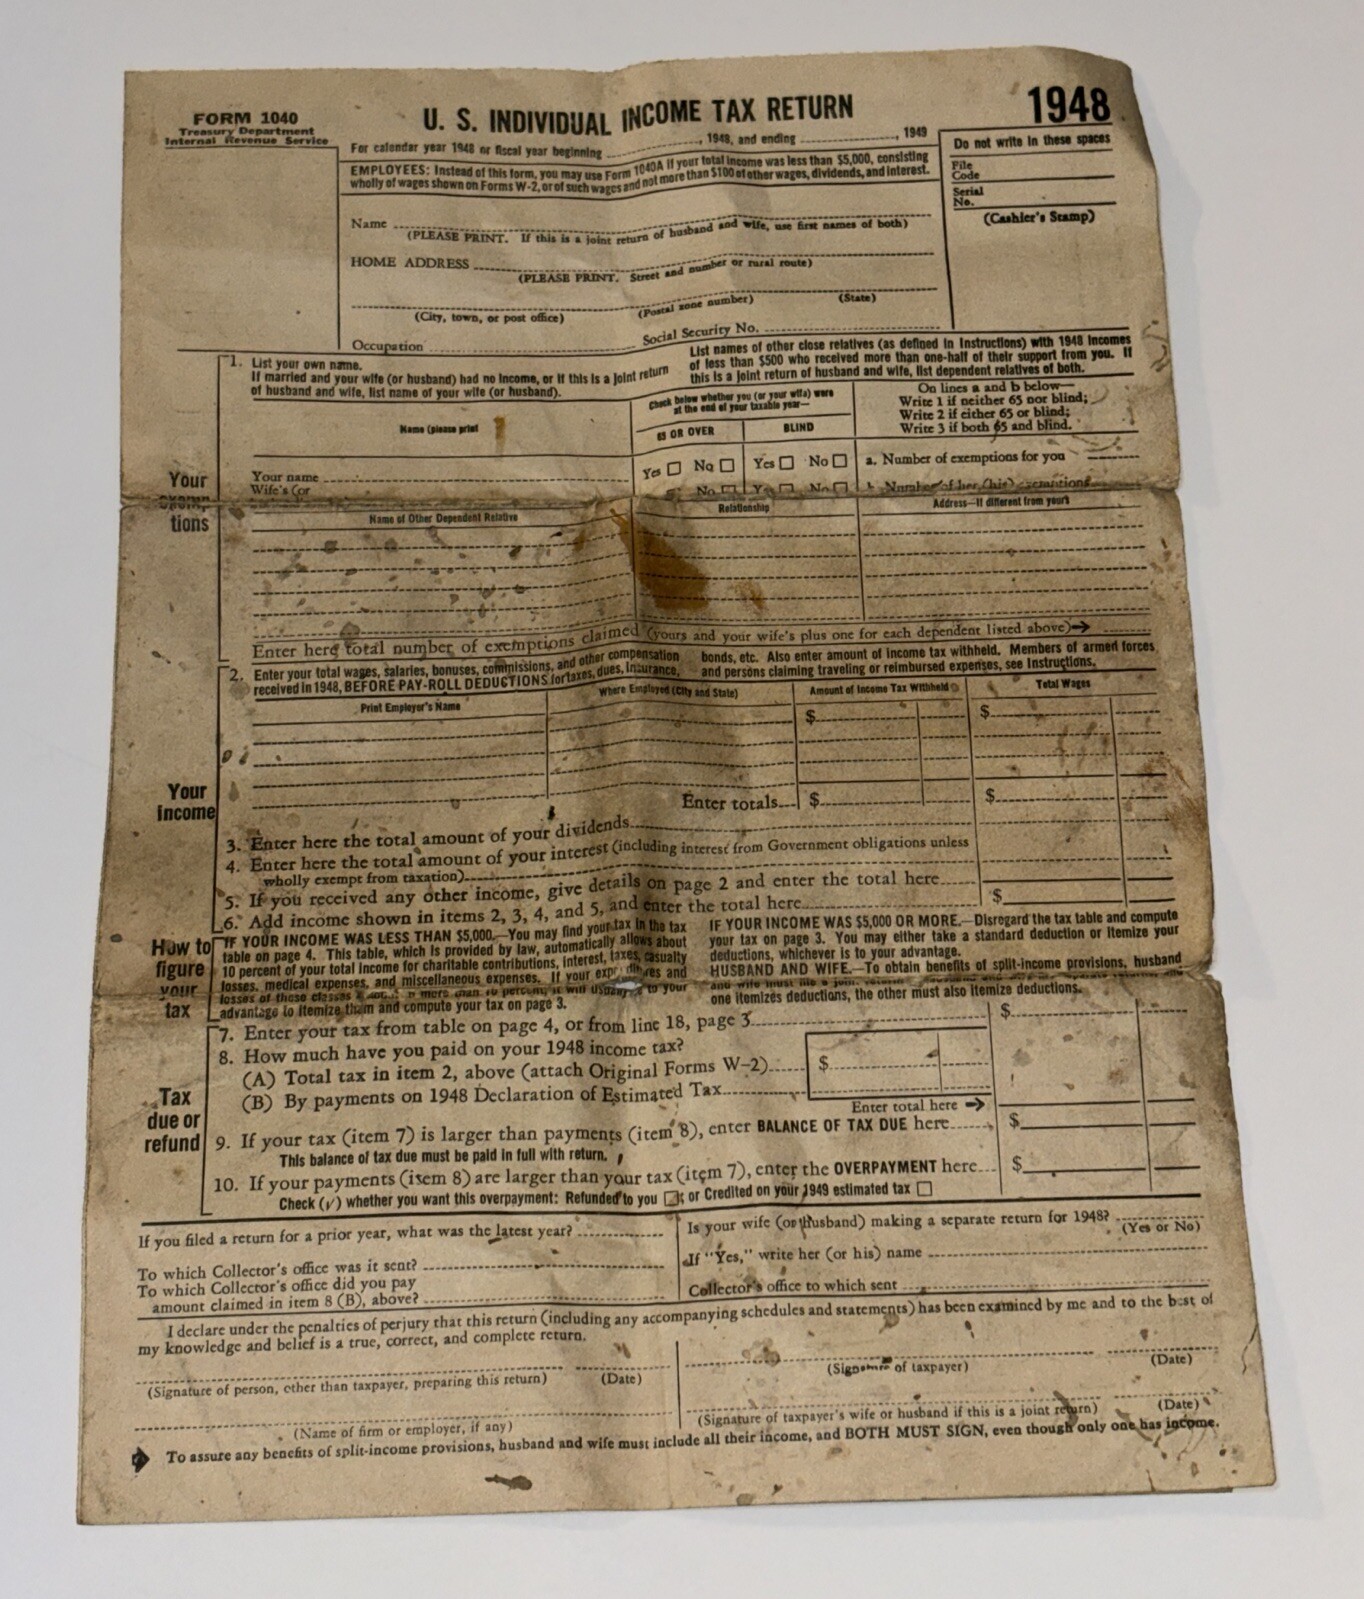 FORM 1040
Treasury Department
Internal Revenue Service
U. S. INDIVIDUAL INCOME TAX RETURN
1948
For calendar year 1948 or fiscal year beginning , 1948, and ending , 1949
EMPLOYEES: Instead of this form, you may use Form 1040A if your total income was less than $5,000, consisting
wholly of wages shown on Forms W-2, or of such wages and not more than $100 of other wages, dividends, and interest.
Do not write in these spaces
File
Code
Serial
No.
(Cashier's Stamp)
Name
(PLEASE PRINT. If this is a joint return of husband and wife, use first names of both)
HOME ADDRESS
(PLEASE PRINT. Street and number or rural route)
(City, town, or post office) (Postal zone number) (State)
Occupation Social Security No.
Your
exemp-
tions
1. List your own name.
If married and your wife (or husband) had no income, or if this is a joint return
of husband and wife, list name of your wife (or husband).
List names of other close relatives (as defined in Instructions) with 1948 incomes
of less than $500 who received more than one-half of their support from you. If
this is a joint return of husband and wife, list dependent relatives of both.
Name (please print
Check below whether you (or your wife) were
at the end of your taxable year—
65 OR OVER BLIND
On lines a and b below—
Write 1 if neither 65 nor blind;
Write 2 if either 65 or blind;
Write 3 if both 65 and blind.
Your name Yes No Yes No a. Number of exemptions for you
Wife's (or No Yes No b. Number of her (his) exemptions
Name of Other Dependent Relative Relationship Address—If different from yours
Enter here total number of exemptions claimed (yours and your wife's plus one for each dependent listed above)→
Your
income
2. Enter your total wages, salaries, bonuses, commissions, and other compensation
received in 1948, BEFORE PAY-ROLL DEDUCTIONS for taxes, dues, insurance,
bonds, etc. Also enter amount of income tax withheld. Members of armed forces
and persons claiming traveling or reimbursed expenses, see Instructions.
Print Employer's Name Where Employed (City and State) Amount of Income Tax Withheld Total Wages
$ $
Enter totals $ $
3. Enter here the total amount of your dividends
4. Enter here the total amount of your interest (including interest from Government obligations unless
wholly exempt from taxation)
5. If you received any other income, give details on page 2 and enter the total here
6. Add income shown in items 2, 3, 4, and 5, and enter the total here $
How to
figure
your
tax
IF YOUR INCOME WAS LESS THAN $5,000.—You may find your tax in the tax
table on page 4. This table, which is provided by law, automatically allows about
10 percent of your total income for charitable contributions, interest, taxes, casualty
losses, medical expenses, and miscellaneous expenses. If your expenditures and
losses of these classes amount to more than 10 percent, it will usually be to your
advantage to itemize them and compute your tax on page 3.
IF YOUR INCOME WAS $5,000 OR MORE.—Disregard the tax table and compute
your tax on page 3. You may either take a standard deduction or itemize your
deductions, whichever is to your advantage.
HUSBAND AND WIFE.—To obtain benefits of split-income provisions, husband
and wife must file a joint return
one itemizes deductions, the other must also itemize deductions.
Tax
due or
refund
7. Enter your tax from table on page 4, or from line 18, page 3 $
8. How much have you paid on your 1948 income tax?
(A) Total tax in item 2, above (attach Original Forms W-2) $
(B) By payments on 1948 Declaration of Estimated Tax
Enter total here →
9. If your tax (item 7) is larger than payments (item 8), enter BALANCE OF TAX DUE here $
This balance of tax due must be paid in full with return.
10. If your payments (item 8) are larger than your tax (item 7), enter the OVERPAYMENT here $
Check (✓) whether you want this overpayment: Refunded to you ☐; or Credited on your 1949 estimated tax ☐
If you filed a return for a prior year, what was the latest year?
To which Collector's office was it sent?
To which Collector's office did you pay
amount claimed in item 8 (B), above?
Is your wife (or husband) making a separate return for 1948?
(Yes or No)
If "Yes," write her (or his) name
Collector's office to which sent
I declare under the penalties of perjury that this return (including any accompanying schedules and statements) has been examined by me and to the best of
my knowledge and belief is a true, correct, and complete return.
(Signature of person, other than taxpayer, preparing this return) (Date)
(Signature of taxpayer) (Date)
(Name of firm or employer, if any)
(Signature of taxpayer's wife or husband if this is a joint return) (Date)
To assure any benefits of split-income provisions, husband and wife must include all their income, and BOTH MUST SIGN, even though only one has income.